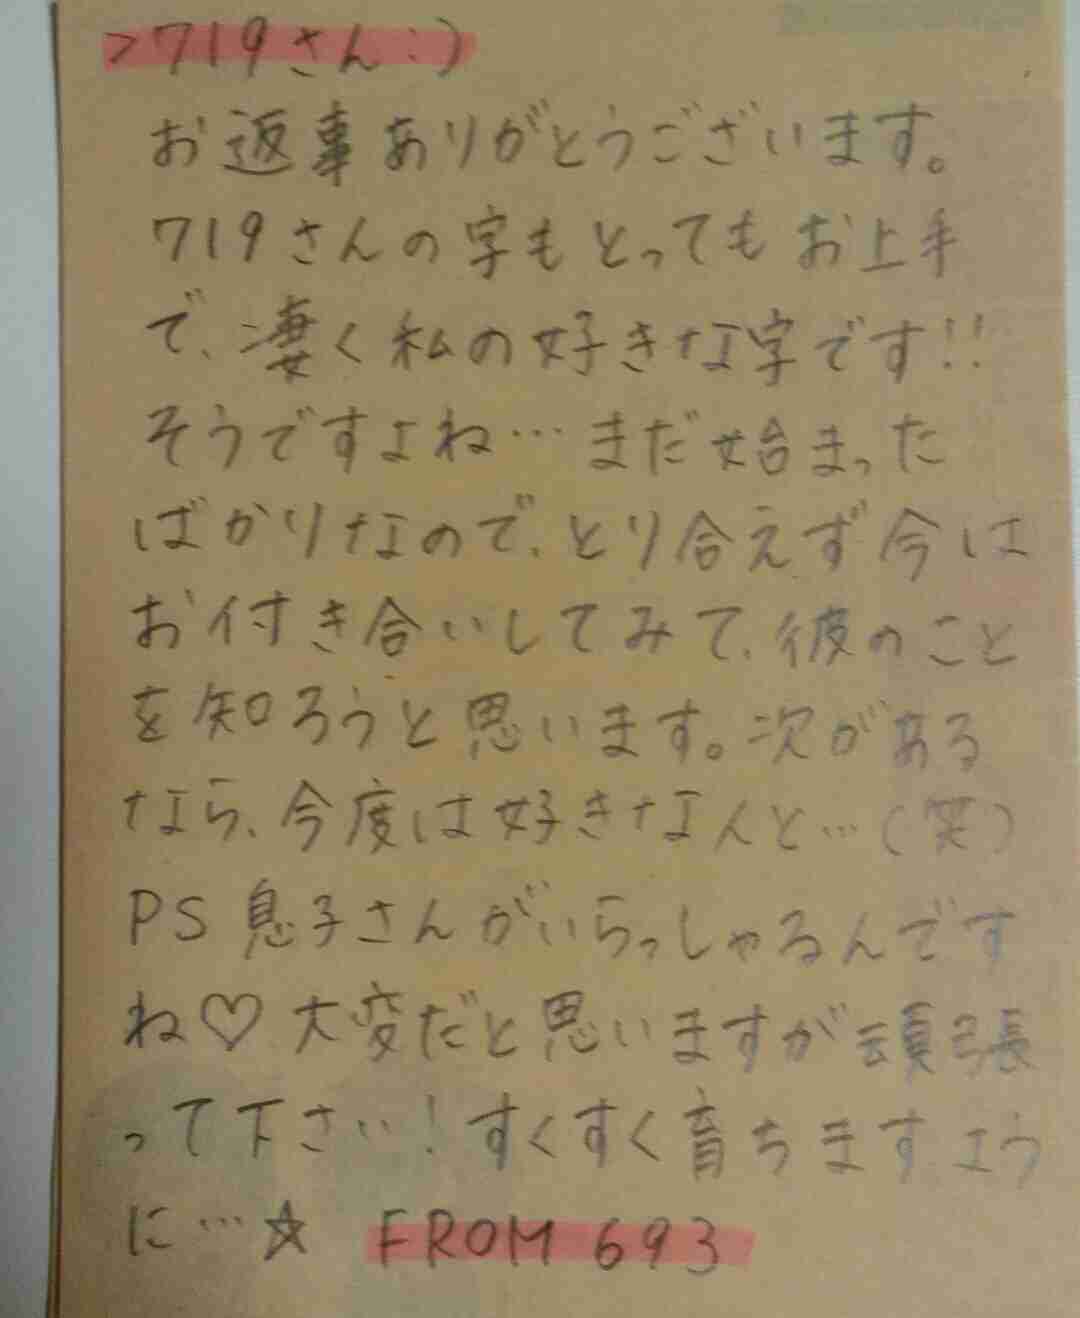 >719さん:)
お返事ありがとうございます。
719さんの字もとってもお上手
で、凄く私の好きな字です!!
そうですよね…まだ始まった
ばかりなので、とり合えず今は
お付き合いしてみて、彼のこと
を知ろうと思います。次がある
なら、今度は好きな人と…(笑)
PS 息子さんがいらっしゃるんです
ね♡大変だと思いますが頑張
って下さい!すくすく育ちますよう
に…☆ FROM 693